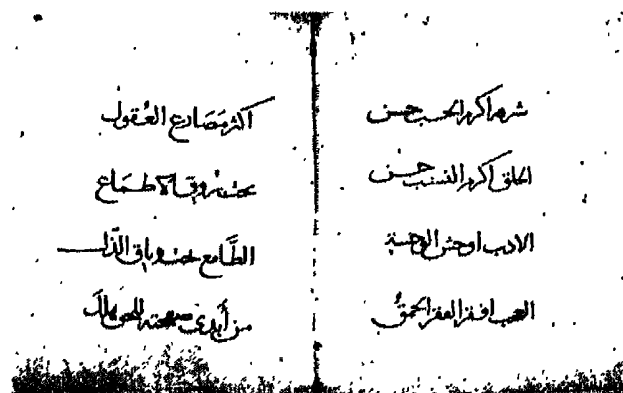 شره اكرم الحسب حسن
الخلق اكرم النسب حسن
الادب اوحش الوحشة
العجب افقر الفقر الحمقُ
اكثر مَصَارع العُقول
تحت بروق الاطمَاع
الطَّامع وثاق الذّل
من أبدى صفحته للحق هلك